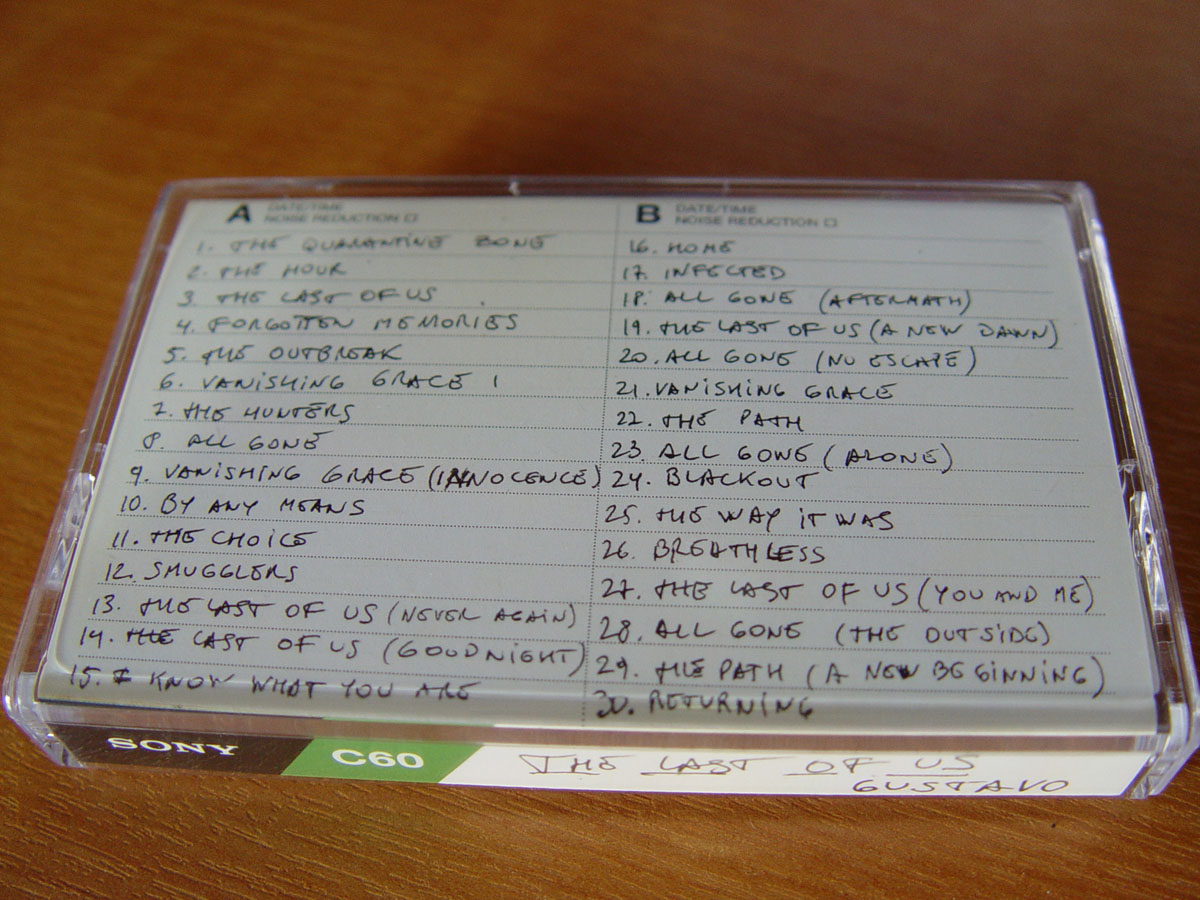 A DATE/TIME
NOISE REDUCTION
1. THE QUARANTINE ZONE
2. THE HOUR
3. THE LAST OF US
4. FORGOTTEN MEMORIES
5. THE OUTBREAK
6. VANISHING GRACE 1
7. THE HUNTERS
8. ALL GONE
9. VANISHING GRACE (INNOCENCE)
10. BY ANY MEANS
11. THE CHOICE
12. SMUGGLERS
13. THE LAST OF US (NEVER AGAIN)
14. THE LAST OF US (GOODNIGHT)
15. I KNOW WHAT YOU ARE
B DATE/TIME
NOISE REDUCTION
16. HOME
17. INFECTED
18. ALL GONE (AFTERMATH)
19. THE LAST OF US (A NEW DAWN)
20. ALL GONE (NO ESCAPE)
21. VANISHING GRACE
22. THE PATH
23. ALL GONE (ALONE)
24. BLACKOUT
25. THE WAY IT WAS
26. BREATHLESS
27. THE LAST OF US (YOU AND ME)
28. ALL GONE (THE OUTSIDE)
29. THE PATH (A NEW BEGINNING)
30. RETURNING
SONY C60 THE LAST OF US
GUSTAVO